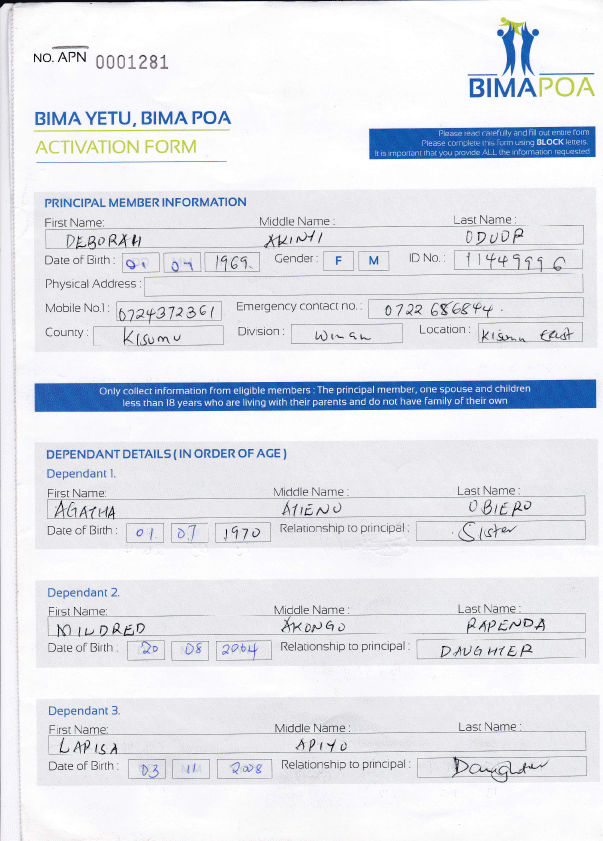 NO. APN 0001281
BIMAPOA
BIMA YETU, BIMA POA
ACTIVATION FORM
Please read carefully and fill out entire form
Please complete this form using BLOCK letters.
It is important that you provide ALL the information requested
PRINCIPAL MEMBER INFORMATION
First Name: Middle Name : Last Name :
DEBORAH AKINYI ODUOR
Date of Birth : 01 04 1969. Gender : F M ID No. : 11449996
Physical Address :
Mobile No.1 : 0724372361 Emergency contact no. : 0722 686844.
County : KISUMU Division : Winam Location : Kisumu East
Only collect information from eligible members : The principal member, one spouse and children
less than 18 years who are living with their parents and do not have family of their own
DEPENDANT DETAILS ( IN ORDER OF AGE )
Dependant 1.
First Name: Middle Name : Last Name :
AGATHA ATIENO OBIERO
Date of Birth : 01. 07 1970 Relationship to principal : Sister
Dependant 2.
First Name: Middle Name : Last Name :
MILDRED AKONGO RAPENDA
Date of Birth : 20 08 2004 Relationship to principal : DAUGHTER
Dependant 3.
First Name: Middle Name : Last Name :
LAPISA APIYO
Date of Birth : 03 11 2008 Relationship to principal : Daughter